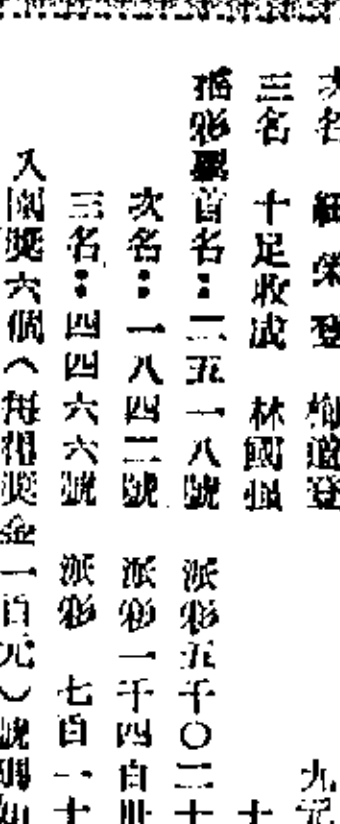 次名 紐榮登 梅遒登 九元
三名 十足收成 林國强 十
搖彩票首名：二五一八號 派彩五千〇二十
次名：一八四二號 派彩一千四百卅
三名：四四六六號 派彩 七百一十
入圍獎六個（每得獎金一百元）號碼如